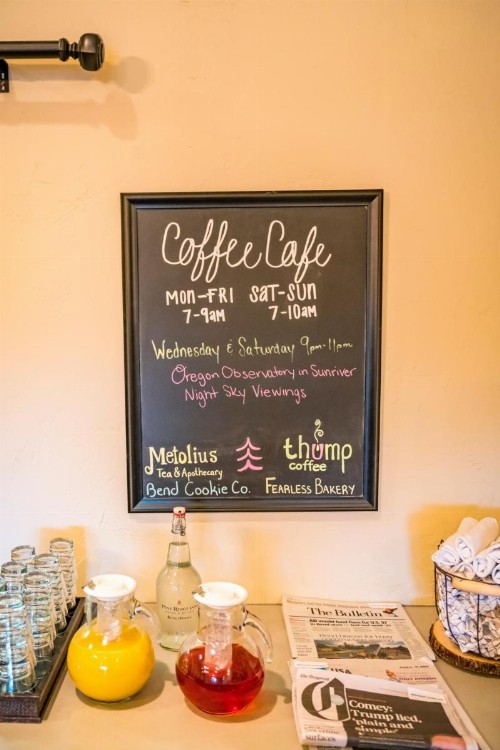 Coffee Cafe
MON-FRI SAT-SUN
7-9am 7-10am
Wednesday & Saturday 9pm-11pm
Oregon Observatory in Sunriver
Night Sky Viewings
Metolius
Tea & Apothecary
thump
coffee
Bend Cookie Co. FEARLESS BAKERY
The Bulletin
USA
Comey:
Trump lied,
'plain and
simple'
surfaces